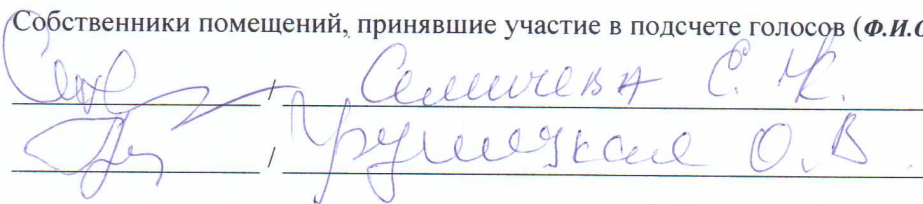 Собственники помещений, принявшие участие в подсчете голосов (Ф.И.О
/ Селичева Е. К.
/ О. В.